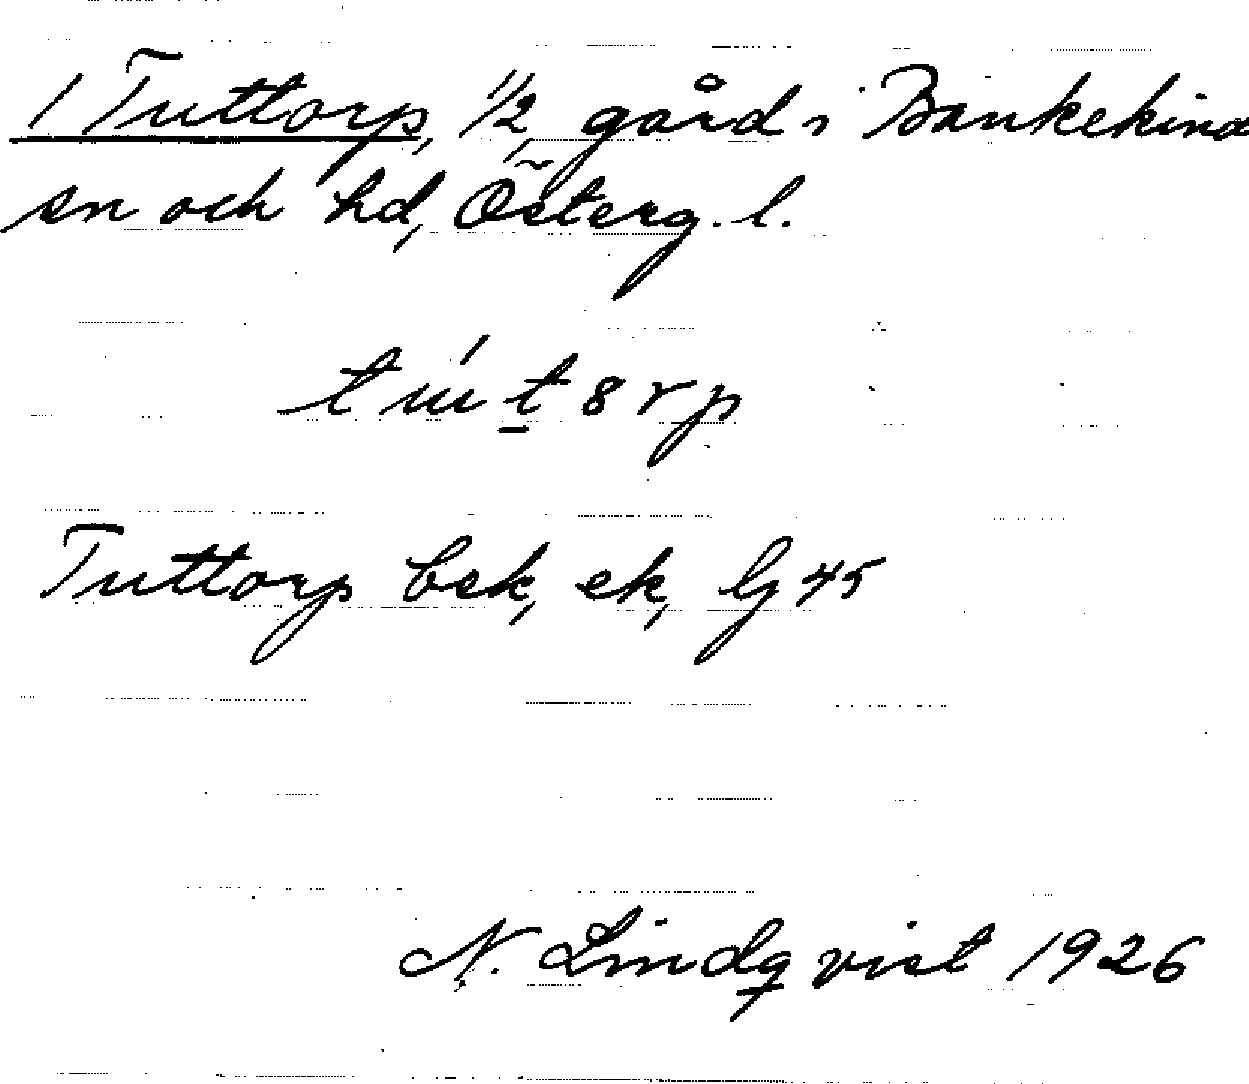 1 Tuttorp, 1/2 gård i Bankekind
sn och hd, Österg. l.
Tuttorp bek, ek, lj 45
N. Lindqvist 1926